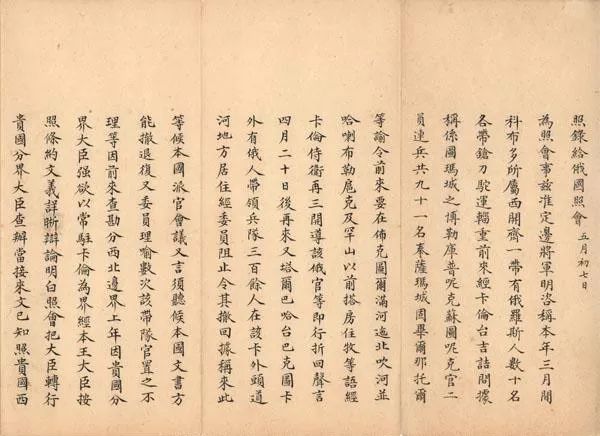 照錄給俄國照會 五月初七日
為照會事茲准定邊將軍明咨稱本年三月間
科布多所屬西開齊一帶有俄羅斯人數十名
各帶鎗刀駝運輜重前來經卡倫台吉詰問據
稱係圖瑪城之博勒庫普呢克蘇圖呢克官二
員連兵共九十一名奉薩瑪城固畢爾那托爾
等諭令前來要在佈克圖爾滿河迤北吹河並
哈喇布勒扈克及罕山以前搭房住牧等語經
卡倫侍衛再三開導該俄官等即行折回聲言
四月二十日後再來又塔爾巴哈台巴克圖卡
外有俄人帶領兵隊三百餘人在該卡外頭道
河地方居住經委員阻止令其撤回據稱來此
等候本國派官會議又言須聽候本國文書方
能撤退復又委員理喻數次該帶隊官置之不
理等因前來查勘分西北邊界上年因貴國分
界大臣強欲以常駐卡倫為界經本王大臣按
照條約文義詳晰辯論明白照會把大臣轉行
貴國分界大臣查辦當接來文已知照貴國西